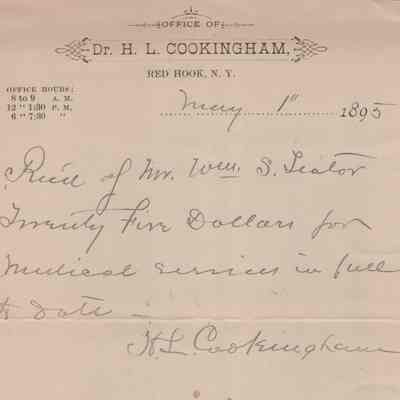 OFFICE OF
Dr. H. L. COOKINGHAM,
RED HOOK, N. Y.
OFFICE HOURS:
8 to 9 A. M.
12 " 1:30 P. M.
6 " 7:30 "
May 1" 1895
Rec'd of Mr. Wm. S. Teator
Twenty Five Dollars for
Medical services in full
to date —
H. L. Cookingham